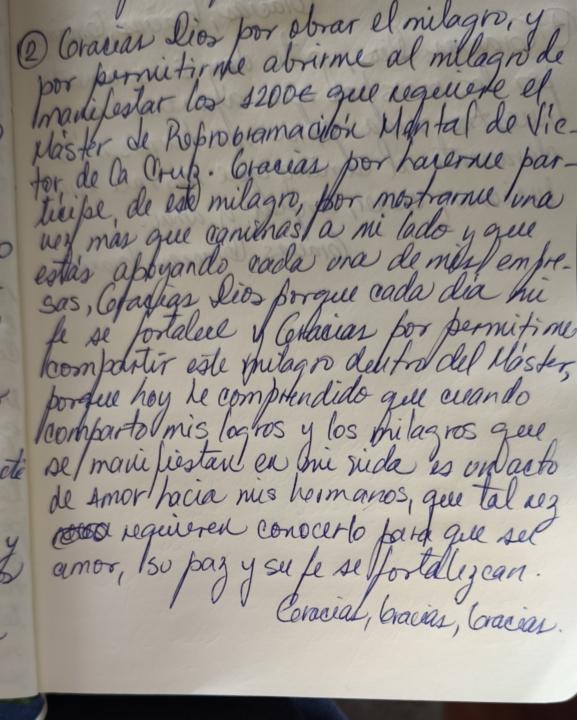 ② Gracias Dios por obrar el milagro, y
por permitirme abrirme al milagro de
manifestar los 1200€ que requiere el
Máster de Reprogramación Mental de Víc-
tor de la Cruz. Gracias por hacerme par-
tícipe, de este milagro, por mostrarme una
vez más que caminas a mi lado y que
estás apoyando cada una de mis empre-
sas, Gracias Dios porque cada día mi
fe se fortalece y Gracias por permitirme
compartir este milagro dentro del Máster,
porque hoy he comprendido que cuando
comparto mis logros y los milagros que
se manifiestan en mi vida es un acto
de Amor hacia mis hermanos, que tal vez
requieren conocerlo para que su
amor, su paz y su fe se fortalezcan.
Gracias, Gracias, Gracias.
cte
y